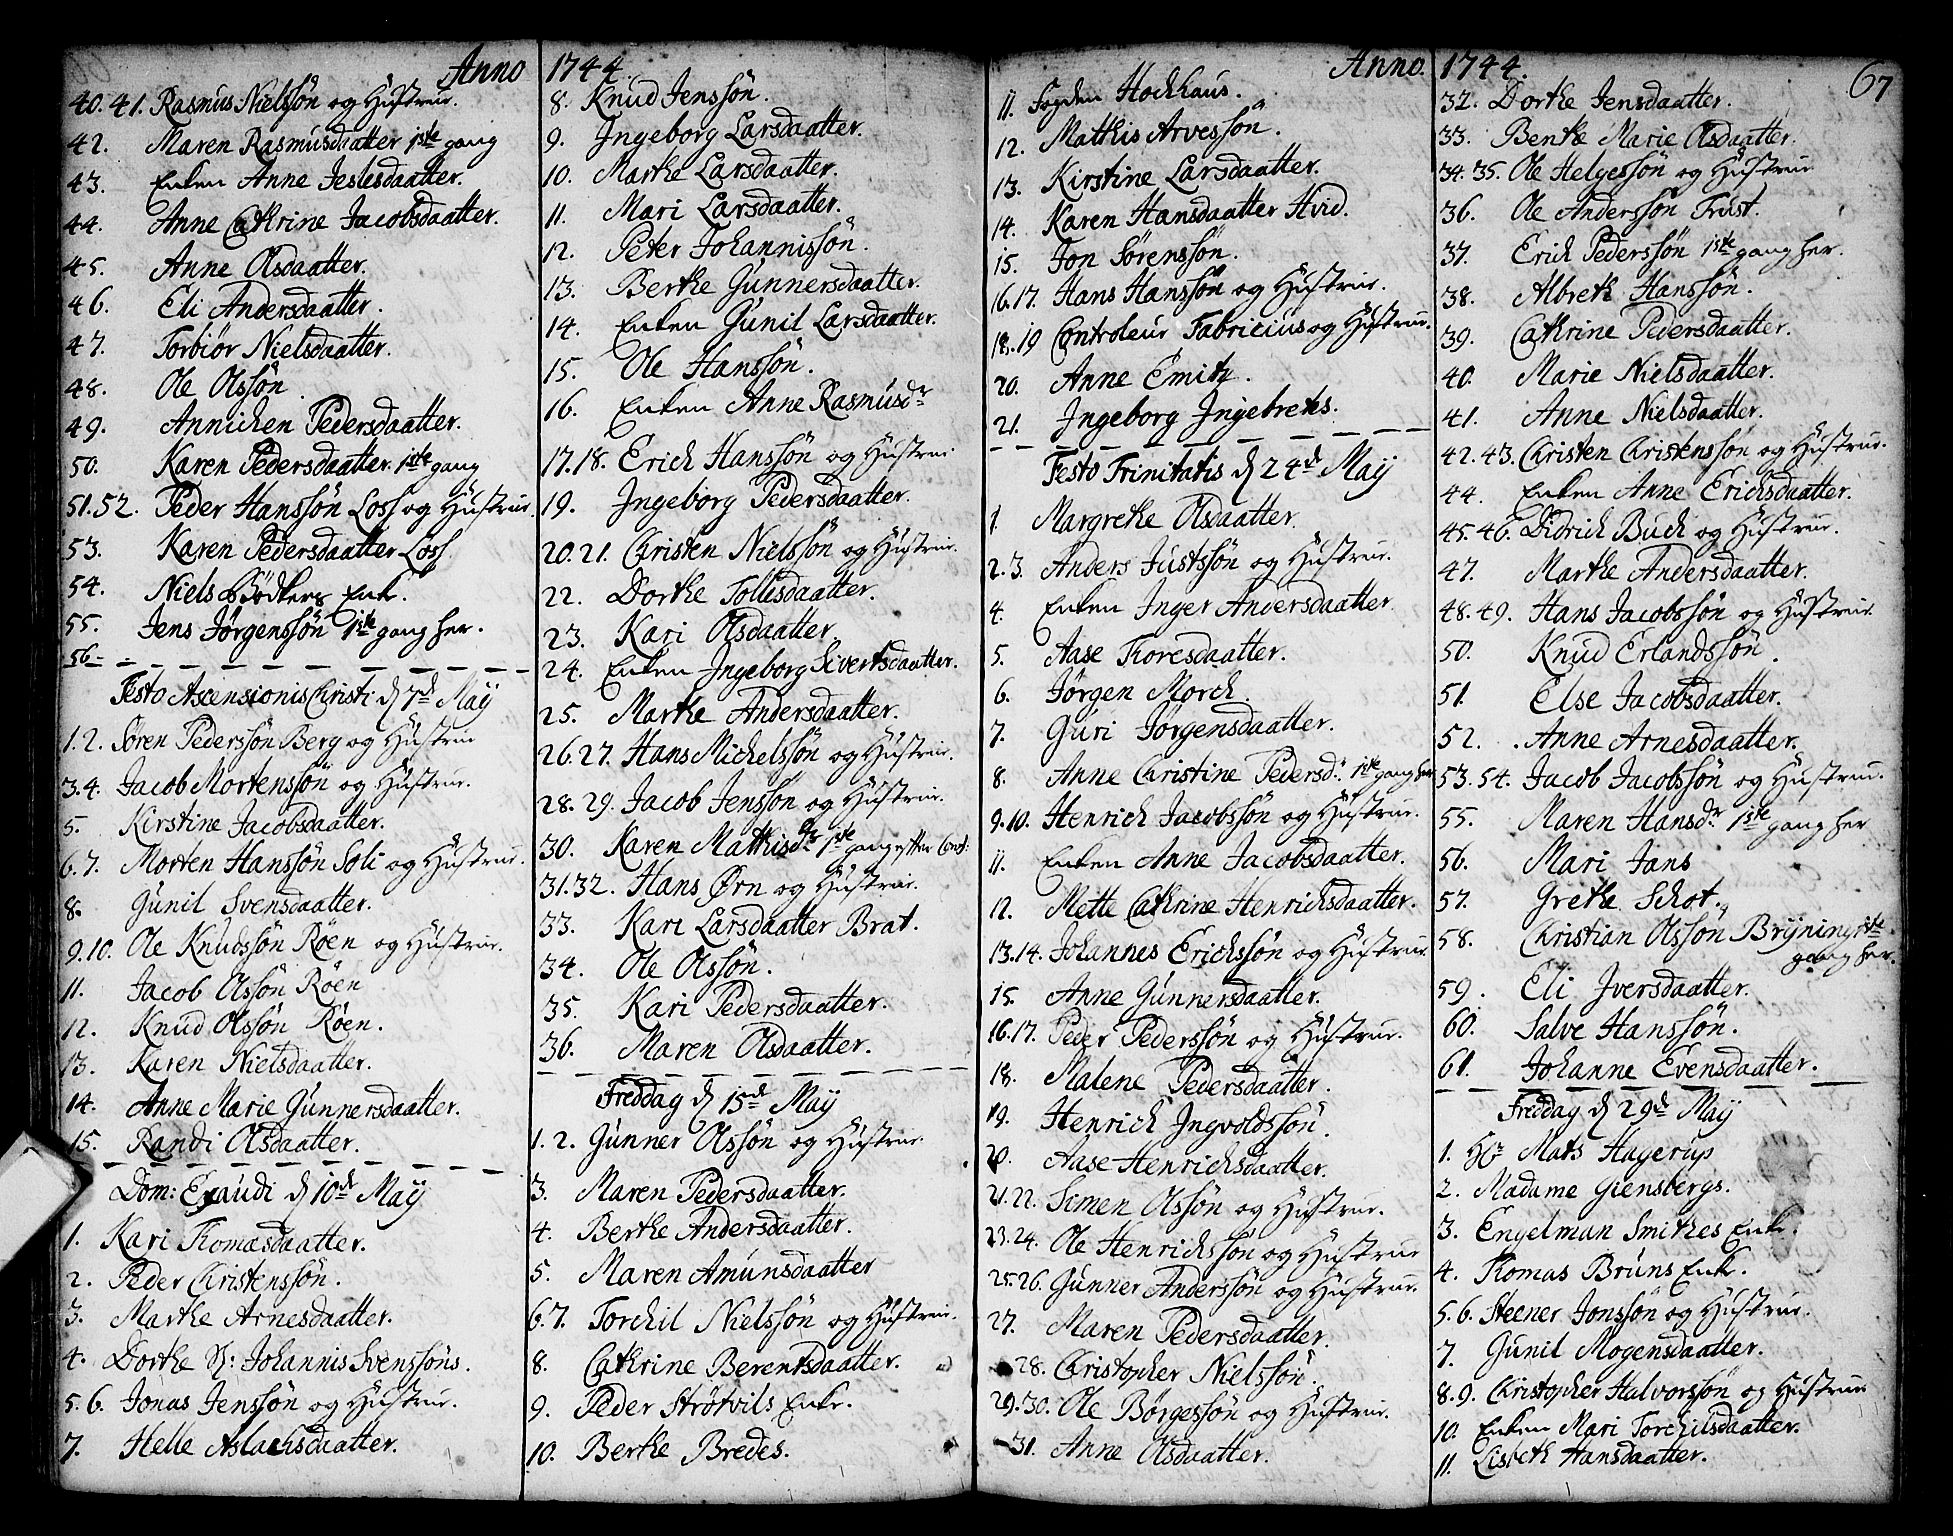 Anno 1744.
40. 41. Rasmus Nielssön og Hustrue.
42. Maren Rasmusdaatter 1ste gang
43. Enken Anne Jeslesdaatter.
44. Anne Cathrine Jacobsdaatter.
45. Anne Olsdaatter.
46. Eli Andersdaatter.
47. Torbiör Nielsdaatter.
48. Ole Olssön.
49. Annichen Pedersdaatter.
50. Karen Pedersdaatter. 1ste gang
51. 52. Peder Hanssön Loss og Hustrue.
53. Karen Pedersdaatter Loss
54. Niels Bödkers Enk.
55. Jens Jörgenssön 1ste gang her.
56
Festo Ascensionis Christi d 7de Maÿ
1. 2. Sören Pederssön Berg og Hustrue
3. 4. Jacob Mortenssön og Hustrue.
5. Kirstine Jacobsdaatter.
6. 7. Morten Hanssön Soli og Hustrue.
8. Gunil Svensdaatter.
9. 10. Ole Knudssön Röen og Hustrue.
11. Jacob Olssön Röen
12. Knud Olssön Röen.
13. Karen Nielsdaatter.
14. Anne Marie Gunnersdaatter.
15. Randi Olsdaatter.
Dom: Exaudi d 10de Maÿ
1. Kari Thomasdaatter.
2. Peder Christenssön.
3. Marthe Arnesdaatter.
4. Dorthe Sl: Johannis Svenssöns.
5. 6. Jonas Jenssön og Hustrue.
7. Helle Aslachsdaatter.
8. Knud Jenssön.
9. Ingeborg Larsdaatter.
10. Marthe Larsdaatter.
11. Mari Larsdaatter.
12. Peter Johannissön.
13. Berthe Gunnersdaatter.
14. Enken Gunil Larsdaatter.
15. Ole Hanssön.
16. Enken Anne Rasmusdr
17. 18. Erich Hanssön og Hustrue
19. Ingeborg Pedersdaatter.
20. 21. Christen Nielssön og Hustrue.
22. Dorthe Tollesdaatter.
23. Kari Olsdaatter
24. Enken Ingeborg Sivertsdaatter.
25. Marthe Andersdaatter.
26. 27. Hans Michelssön og Hustrue.
28. 29. Jacob Jenssön og Hustrue.
30. Karen Mathisdr 1ste gang efter Conf:
31. 32. Hans Ørn og Hustrue.
33. Kari Larsdaatter Brat.
34. Ole Olssön.
35. Kari Pedersdaatter.
36. Maren Olsdaatter.
Freddag d 15de Maÿ
1. 2. Gunner Olssön og Hustrue.
3. Maren Pedersdaatter.
4. Berthe Andersdaatter.
5. Maren Amunsdaatter
6. 7. Torchil Nielssön og Hustrue.
8. Cathrine Berentsdaatter.
9. Peder Strötvils Enke.
10. Berthe Bredes.
Anno 1744. 67
11. Fogden Hochhaus.
12. Matthis Arvessön.
13. Kirstine Larsdaatter.
14. Karen Hansdaatter Hvid.
15. Jon Sörenssön.
16. 17. Hans Hanssön og Hustrue.
18. 19 Controleur Fabricius og Hustrue.
20. Anne Emitz.
21. Ingeborg Ingebrehts.
Festo Trinitatis d 24de Maÿ
1. Margrethe Olsdaatter.
2. 3. Anders Justssön og Hustrue.
4. Enken Inger Andersdaatter.
5. Aase Thoresdaatter.
6. Jörgen Morch.
7. Guri Jörgensdaatter.
8. Anne Christine Pedersd: 1ste gang her
9. 10. Henrich Jacobssön og Hustrue.
11. Enken Anne Jacobsdaatter.
12. Mette Cathrine Henrichsdaatter.
13. 14. Johannes Erichssön og Hustrue.
15. Anne Gunnersdaatter.
16. 17. Peder Pederssön og Hustrue.
18. Malene Pedersdaatter.
19. Henrich Ingvoldssön.
20. Aase Henrichsdaatter.
21. 22. Simen Olssön og Hustrue.
23. 24. Ole Henrichssön og Hustrue
25. 26. Gunner Anderssön og Hustrue.
27. Maren Pedersdaatter
28. Christopher Nielssön.
29. 30. Ole Börgessön og Hustrue.
31. Anne Olsdaatter.
32. Dorthe Jensdaatter.
33. Benthe Marie Olsdaatter.
34. 35. Ole Helgessön og Hustrue
36. Ole Anderssön Trust.
37. Erich Pederssön 1ste gang her.
38. Albreth Hanssön.
39. Cathrine Pedersdaatter.
40. Marie Nielsdaatter.
41. Anne Nielsdaatter.
42. 43. Christen Christenssön og Hustrue.
44. Enken Anne Erichsdaatter.
45. 46. Didrich Buch og Hustrue.
47. Marthe Andersdaatter.
48. 49. Hans Jacobssön og Hustrue.
50. Knud Erlandssön.
51. Else Jacobsdaatter.
52. Anne Arnesdaatter.
53. 54. Jacob Jacobssön og Hustrue.
55. Maren Hansdr 1ste gang her
56. Mari Jans
57. Grethe Schot.
58. Christian Olssön Brÿning 1ste
gang her.
59. Eli Iversdaatter.
60. Salve Hanssön.
61. Johanne Evensdaatter.
Freddag d 29de Maÿ
1. Hr Mats Hagerup
2. Madame Giensbergs.
3. Engelman Smithes Enke.
4. Thomas Bruns Enke.
5. 6. Steener Jonssön og Hustrue.
7. Gunil Mogensdaatter.
8. 9. Christopher Halvorssön og Hustrue
10. Enken Mari Torchilsdaatter.
11. Lisbeth Hansdaatter.